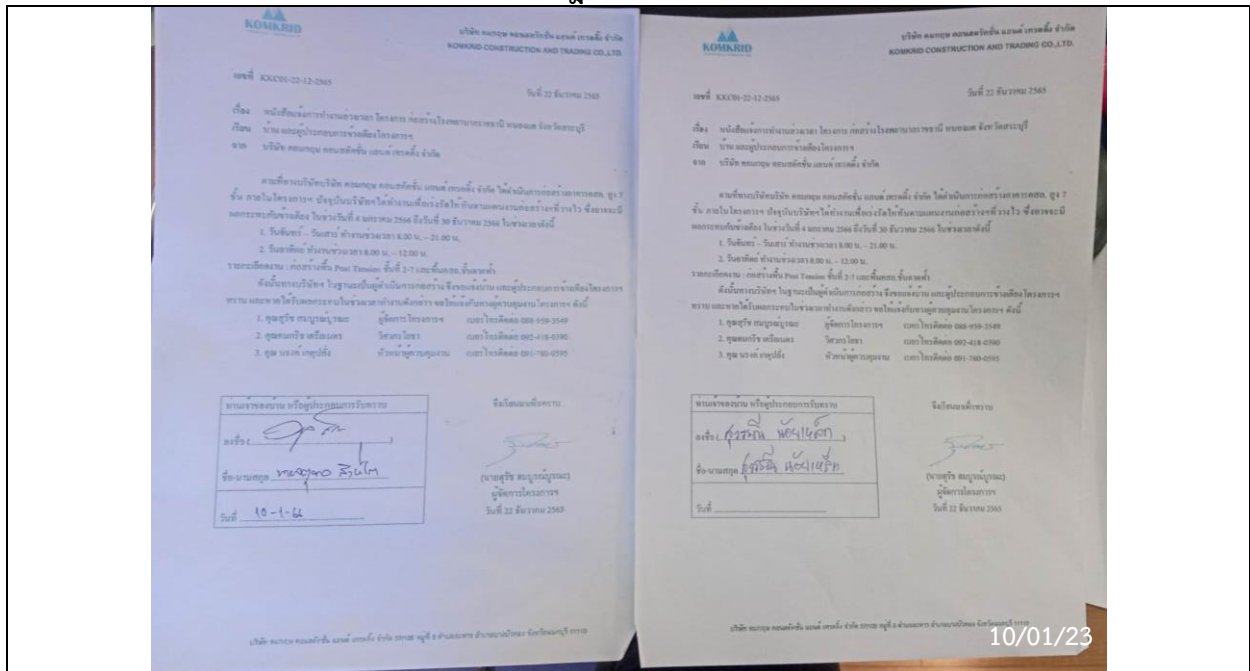 KOMKRID
บริษัท คมกฤษ คอนสตรัคชั่น แอนด์ เทรดดิ้ง จำกัด
KOMKRID CONSTRUCTION AND TRADING CO.,LTD.
เลขที่ KKC01-22-12-2565
วันที่ 22 ธันวาคม 2565
เรื่อง หนังสือแจ้งการทำงานล่วงเวลา โครงการ ก่อสร้างโรงพยาบาลราชธานี หนองแค จังหวัดสระบุรี
เรียน บ้าน และผู้ประกอบการข้างเคียงโครงการฯ
จาก บริษัท คมกฤษ คอนสตรัคชั่น แอนด์ เทรดดิ้ง จำกัด
ตามที่ทางบริษัทบริษัท คมกฤษ คอนสตรัคชั่น แอนด์ เทรดดิ้ง จำกัด ได้ดำเนินการก่อสร้างอาคารคสล. สูง 7
ชั้น ภายในโครงการฯ ปัจจุบันบริษัทฯได้ทำงานเพื่อเร่งรัดให้ทันตามแผนงานก่อสร้างฯที่วางไว้ ซึ่งอาจจะมี
ผลกระทบกับข้างเคียง ในช่วงวันที่ 4 มกราคม 2566 ถึงวันที่ 30 ธันวาคม 2566 ในช่วงเวลาดังนี้
1. วันจันทร์ – วันเสาร์ ทำงานช่วงเวลา 8.00 น. – 21.00 น.
2. วันอาทิตย์ ทำงานช่วงเวลา 8.00 น. – 12.00 น.
รายละเอียดงาน : ก่อสร้างพื้น Post Tension ชั้นที่ 2-7 และพื้นคสล.ชั้นดาดฟ้า
ดังนั้นทางบริษัทฯ ในฐานะเป็นผู้ดำเนินการก่อสร้าง จึงขอแจ้งบ้าน และผู้ประกอบการข้างเคียงโครงการฯ
ทราบ และหากได้รับผลกระทบในช่วงเวลาทำงานดังกล่าว ขอให้แจ้งกับทางผู้ควบคุมงานโครงการฯ ดังนี้
1. คุณสุรัช สมบูรณ์บูรณะ ผู้จัดการโครงการฯ เบอร์โทรติดต่อ 088-959-3549
2. คุณคมกริช เครือเนตร วิศวกรโยธา เบอร์โทรติดต่อ 092-418-0590
3. คุณ ณรงค์ เกตุปลั่ง หัวหน้าผู้ควบคุมงาน เบอร์โทรติดต่อ 091-780-0595
ท่านเจ้าของบ้าน หรือผู้ประกอบการรับทราบ
จึงเรียนมาเพื่อทราบ
ลงชื่อ ( )
ชื่อ-นามสกุล
(นายสุรัช สมบูรณ์บูรณะ)
ผู้จัดการโครงการฯ
วันที่ 10-1-66
วันที่ 22 ธันวาคม 2565
KOMKRID
บริษัท คมกฤษ คอนสตรัคชั่น แอนด์ เทรดดิ้ง จำกัด
KOMKRID CONSTRUCTION AND TRADING CO.,LTD.
เลขที่ KKC01-22-12-2565
วันที่ 22 ธันวาคม 2565
เรื่อง หนังสือแจ้งการทำงานล่วงเวลา โครงการ ก่อสร้างโรงพยาบาลราชธานี หนองแค จังหวัดสระบุรี
เรียน บ้าน และผู้ประกอบการข้างเคียงโครงการฯ
จาก บริษัท คมกฤษ คอนสตรัคชั่น แอนด์ เทรดดิ้ง จำกัด
ตามที่ทางบริษัทบริษัท คมกฤษ คอนสตรัคชั่น แอนด์ เทรดดิ้ง จำกัด ได้ดำเนินการก่อสร้างอาคารคสล. สูง 7
ชั้น ภายในโครงการฯ ปัจจุบันบริษัทฯได้ทำงานเพื่อเร่งรัดให้ทันตามแผนงานก่อสร้างฯที่วางไว้ ซึ่งอาจจะมี
ผลกระทบกับข้างเคียง ในช่วงวันที่ 4 มกราคม 2566 ถึงวันที่ 30 ธันวาคม 2566 ในช่วงเวลาดังนี้
1. วันจันทร์ – วันเสาร์ ทำงานช่วงเวลา 8.00 น. – 21.00 น.
2. วันอาทิตย์ ทำงานช่วงเวลา 8.00 น. – 12.00 น.
รายละเอียดงาน : ก่อสร้างพื้น Post Tension ชั้นที่ 2-7 และพื้นคสล.ชั้นดาดฟ้า
ดังนั้นทางบริษัทฯ ในฐานะเป็นผู้ดำเนินการก่อสร้าง จึงขอแจ้งบ้าน และผู้ประกอบการข้างเคียงโครงการฯ
ทราบ และหากได้รับผลกระทบในช่วงเวลาทำงานดังกล่าว ขอให้แจ้งกับทางผู้ควบคุมงานโครงการฯ ดังนี้
1. คุณสุรัช สมบูรณ์บูรณะ ผู้จัดการโครงการฯ เบอร์โทรติดต่อ 088-959-3549
2. คุณคมกริช เครือเนตร วิศวกรโยธา เบอร์โทรติดต่อ 092-418-0590
3. คุณ ณรงค์ เกตุปลั่ง หัวหน้าผู้ควบคุมงาน เบอร์โทรติดต่อ 091-780-0595
ท่านเจ้าของบ้าน หรือผู้ประกอบการรับทราบ
จึงเรียนมาเพื่อทราบ
ลงชื่อ ( )
ชื่อ-นามสกุล
(นายสุรัช สมบูรณ์บูรณะ)
ผู้จัดการโครงการฯ
วันที่
วันที่ 22 ธันวาคม 2565
10/01/23